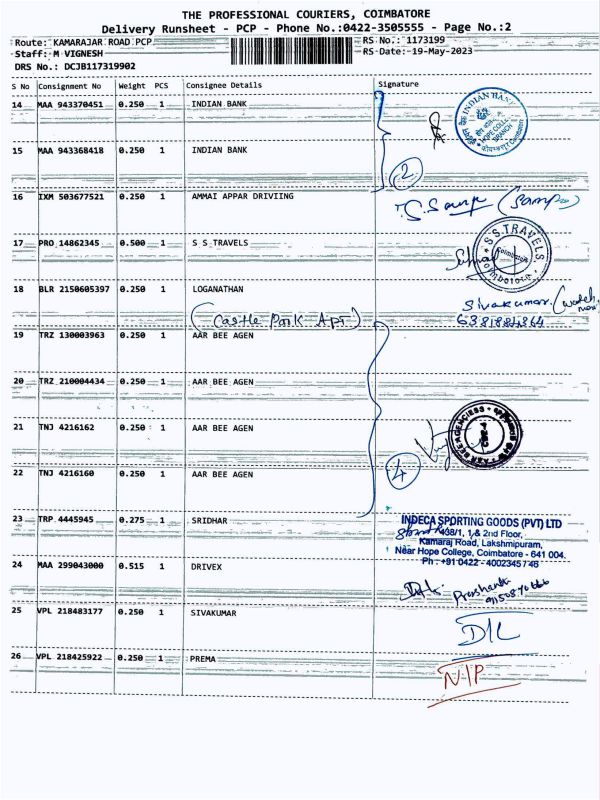 THE PROFESSIONAL COURIERS, COIMBATORE
Delivery Runsheet - PCP - Phone No.:0422-3505555 - Page No.:2
Route: KAMARAJAR ROAD PCP
RS No.: 1173199
Staff: M VIGNESH
RS-Date: 19-May-2023
DRS No.: DCJB117319902
S No Consignment No Weight PCS Consignee Details Signature
14 MAA 943370451 0.250 1 INDIAN BANK
INDIAN BANK
HOPE COLLEGE
BRANCH
15 MAA 943368418 0.250 1 INDIAN BANK
2
16 IXM 503677521 0.250 1 AMMAI APPAR DRIVIING
17 PRO 14862345 0.500 1 S S TRAVELS
S.S.TRAVELS
Coimbatore
18 BLR 2150605397 0.250 1 LOGANATHAN
Sivakumar
(Castle Park Apt)
19 TRZ 130003963 0.250 1 AAR BEE AGEN
20 TRZ 210004434 0.250 1 AAR BEE AGEN
21 TNJ 4216162 0.250 1 AAR BEE AGEN
4
22 TNJ 4216160 0.250 1 AAR BEE AGEN
23 TRP 4445945 0.275 1 SRIDHAR
INDECA SPORTING GOODS (PVT) LTD
1 & 2nd Floor,
Kamaraj Road, Lakshmipuram,
Near Hope College, Coimbatore - 641 004.
Ph : +91 0422 - 4002345 / 46
24 MAA 299043000 0.515 1 DRIVEX
Prashanth
25 VPL 218483177 0.250 1 SIVAKUMAR
D/L
26 VPL 218425922 0.250 1 PREMA
N/P